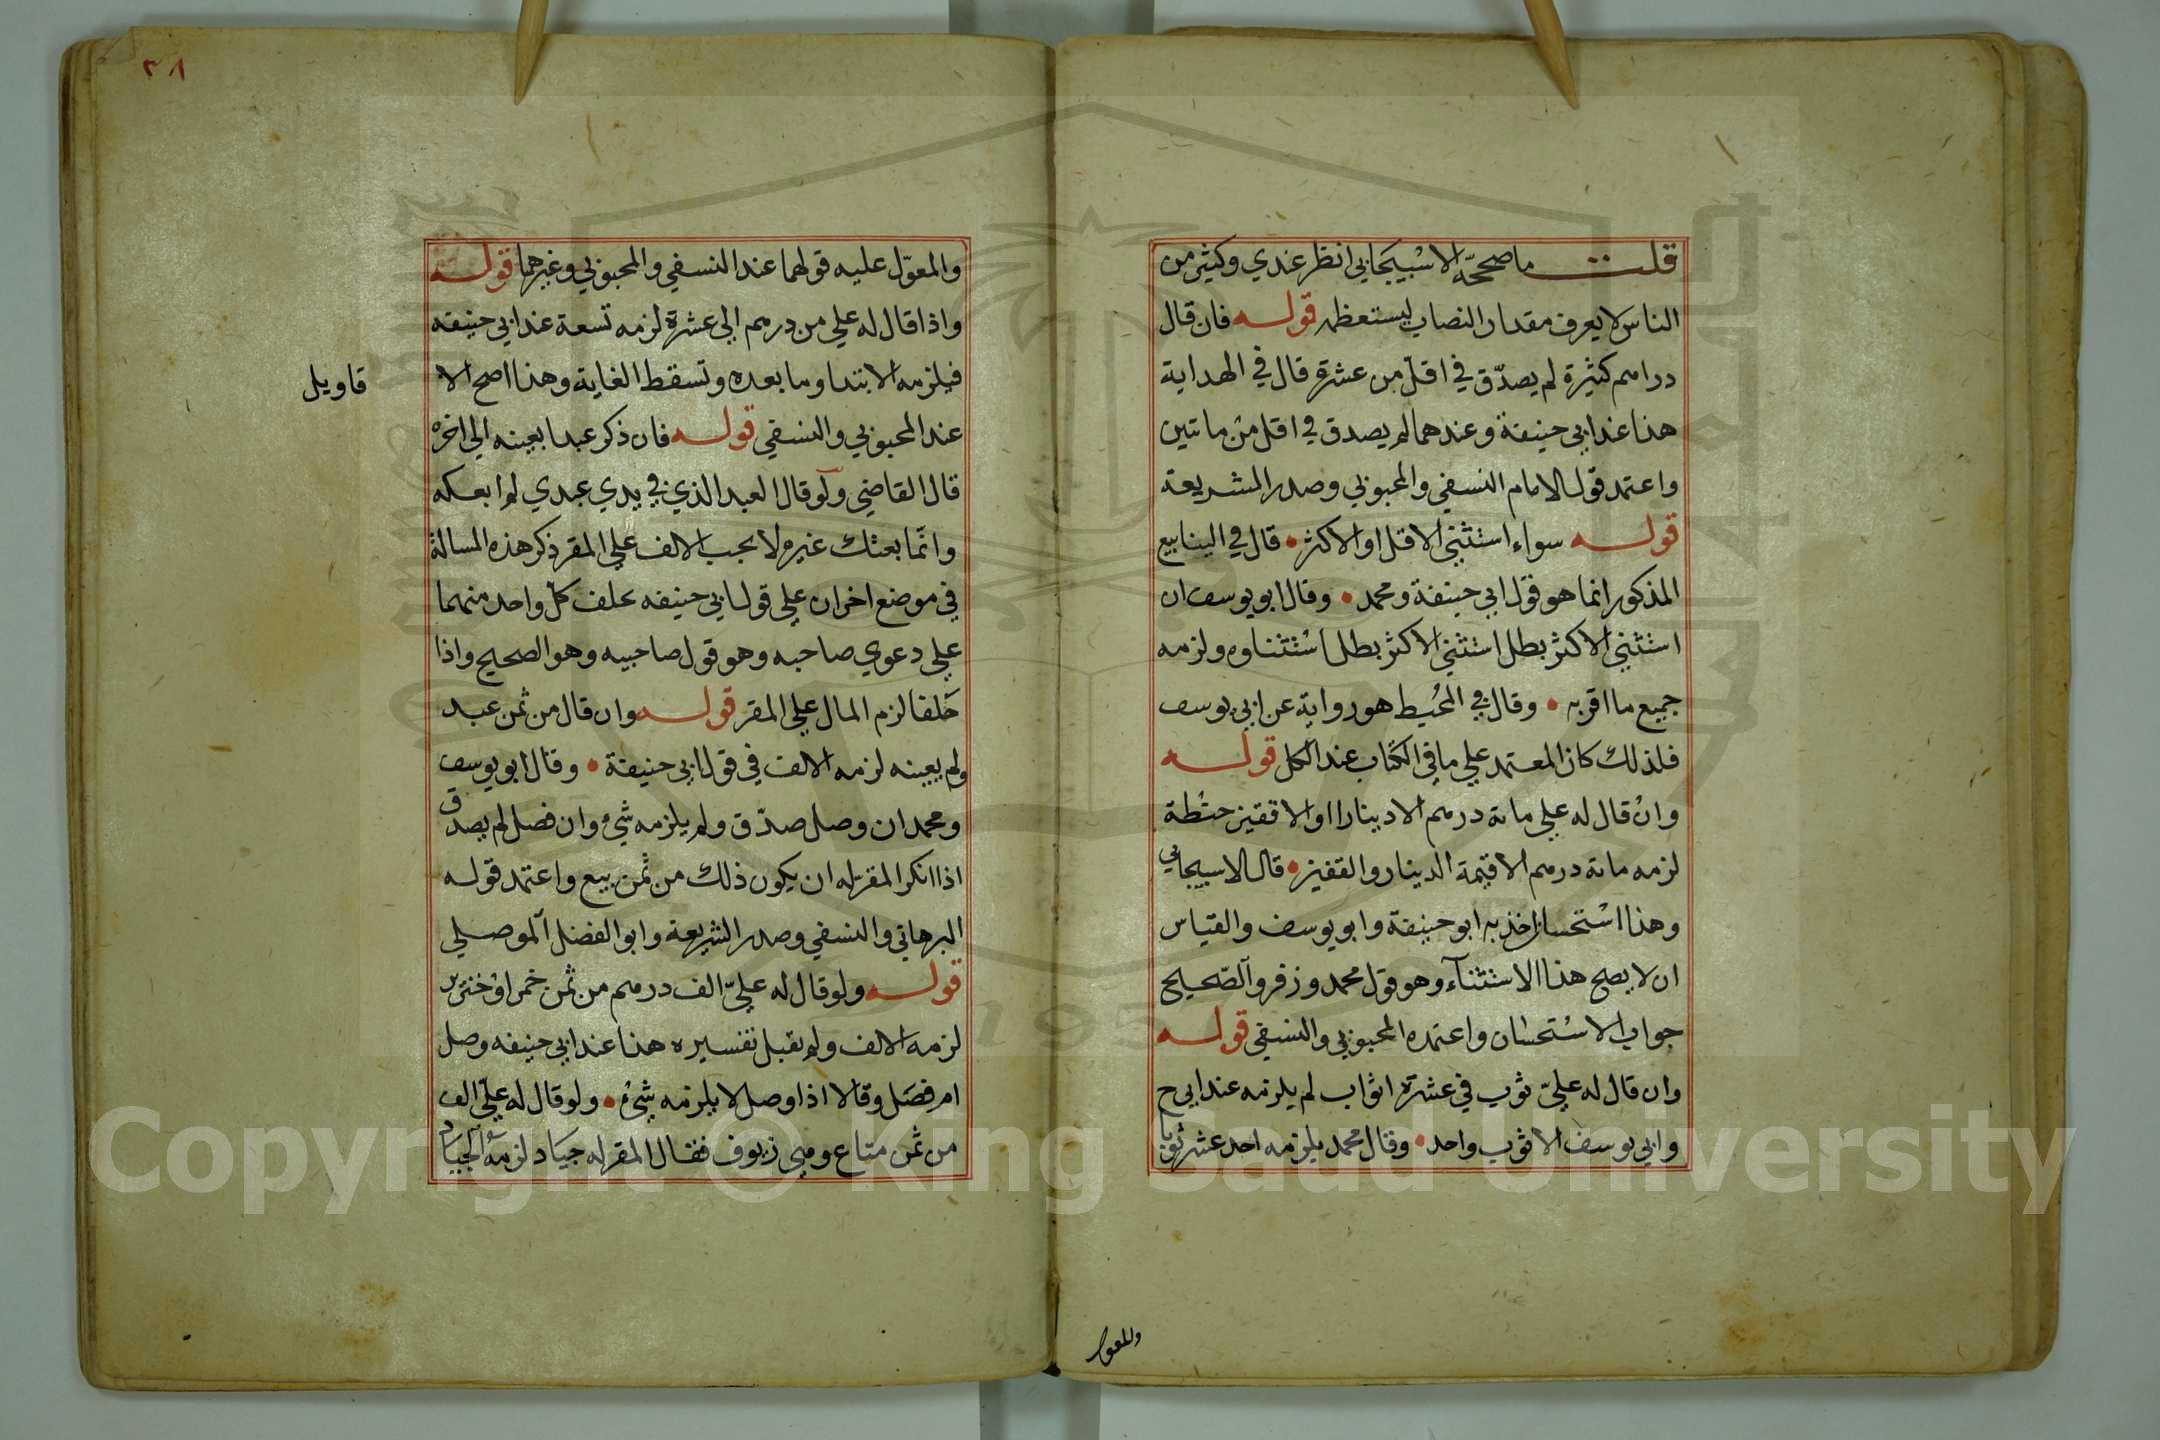 قلت ما صححه الاسبيجابي انظر عندي وكثير من
الناس لا يعرف مقدار النصاب ليستعظمه قوله فان قال
دراهم كثيرة لم يصدّق في اقلّ من عشرة قال في الهداية
هذا عند ابي حنيفة وعندهما لم يصدق في اقل من ماتين
واعتمد قول الامام النسفي والمحبوبي وصدر الشريعة
قوله سواء استثني الاقل او الاكثر • قال في الينابيع
المذكور انما هو قول ابي حنيفة ومحمد • وقال ابو يوسف ان
استثني الاكثر بطل استثني الاكثر بطل استثناوه ولزمه
جميع ما اقر به • وقال في المحيط هو رواية عن ابي يوسف
فلذلك كان المعتمد علي ما في الكتاب عند الكل قوله
وان قال له علي ماىة درهم الا دينارا او الا قفيز حنطة
لزمه ماىة درهم الا قيمة الدينار والقفيز • قال الاسبيجابي
وهذا استحسان اخذ به ابو حنيفة وابو يوسف والقياس
ان لا يصح هذا الاستثنآء وهو قول محمد وزفر والصّحيح
جواب الاستحسان واعتمده المحبوبي والنسفي قوله
وان قال له عليّ ثوب في عشرة اثواب لم يلزمه عند ابي ح
وابي يوسف الا ثوب واحد • وقال محمد يلزمه احد عشر ثوبا
والمعول
٣٨
والمعوّل عليه قولهما عند النسفي والمحبوبي وغيرهما قوله
واذا قال له علي من درهم الي عشرة لزمه تسعة عند ابي حنيفه
فيلزمه الابتدا وما بعده وتسقط الغاية وهذا اصح الا
قاويل
عند المحبوبي والنسفي قوله فان ذكر عبدا بعينه الي اخره
قال القاضي ولو قال العبد الذي في يدي عبدي لم ابعكه
وانّما بعتك غيره لا يجب الالف علي المقر ذكر هذه المسالة
في موضع اخر ان علي قول ابي حنيفه يحلف كلّ واحد منهما
علي دعوي صاحبه وهو قول صاحبيه وهو الصحيح واذا
حَلفا لزم المال علي المقر قوله وان قال من ثمن عبد
ولم يعينه لزمه الالف في قول ابي حنيفة • وقال ابو يوسف
ومحمد ان وصل صدّق ولم يلزمه شيء وان فصل لم يصدق
اذا انكر المقر له ان يكون ذلك من ثمن بيع واعتمد قوله
البرهاني والنسفي وصدر الشريعة وابو الفضل الموصلي
قوله ولو قال له عليّ الف درهم من ثمن خمر او خنزير
لزمه الالف ولم يقبل تفسيره هذا عند ابي حنيفه وصل
ام فصَل وقالا اذا وصل لا يلزمه شيء • ولو قال له عليّ الف
من ثمن متاع وهي زيوف فقال المقر له جياد لزمه الجياد
Copyright © King Saud University